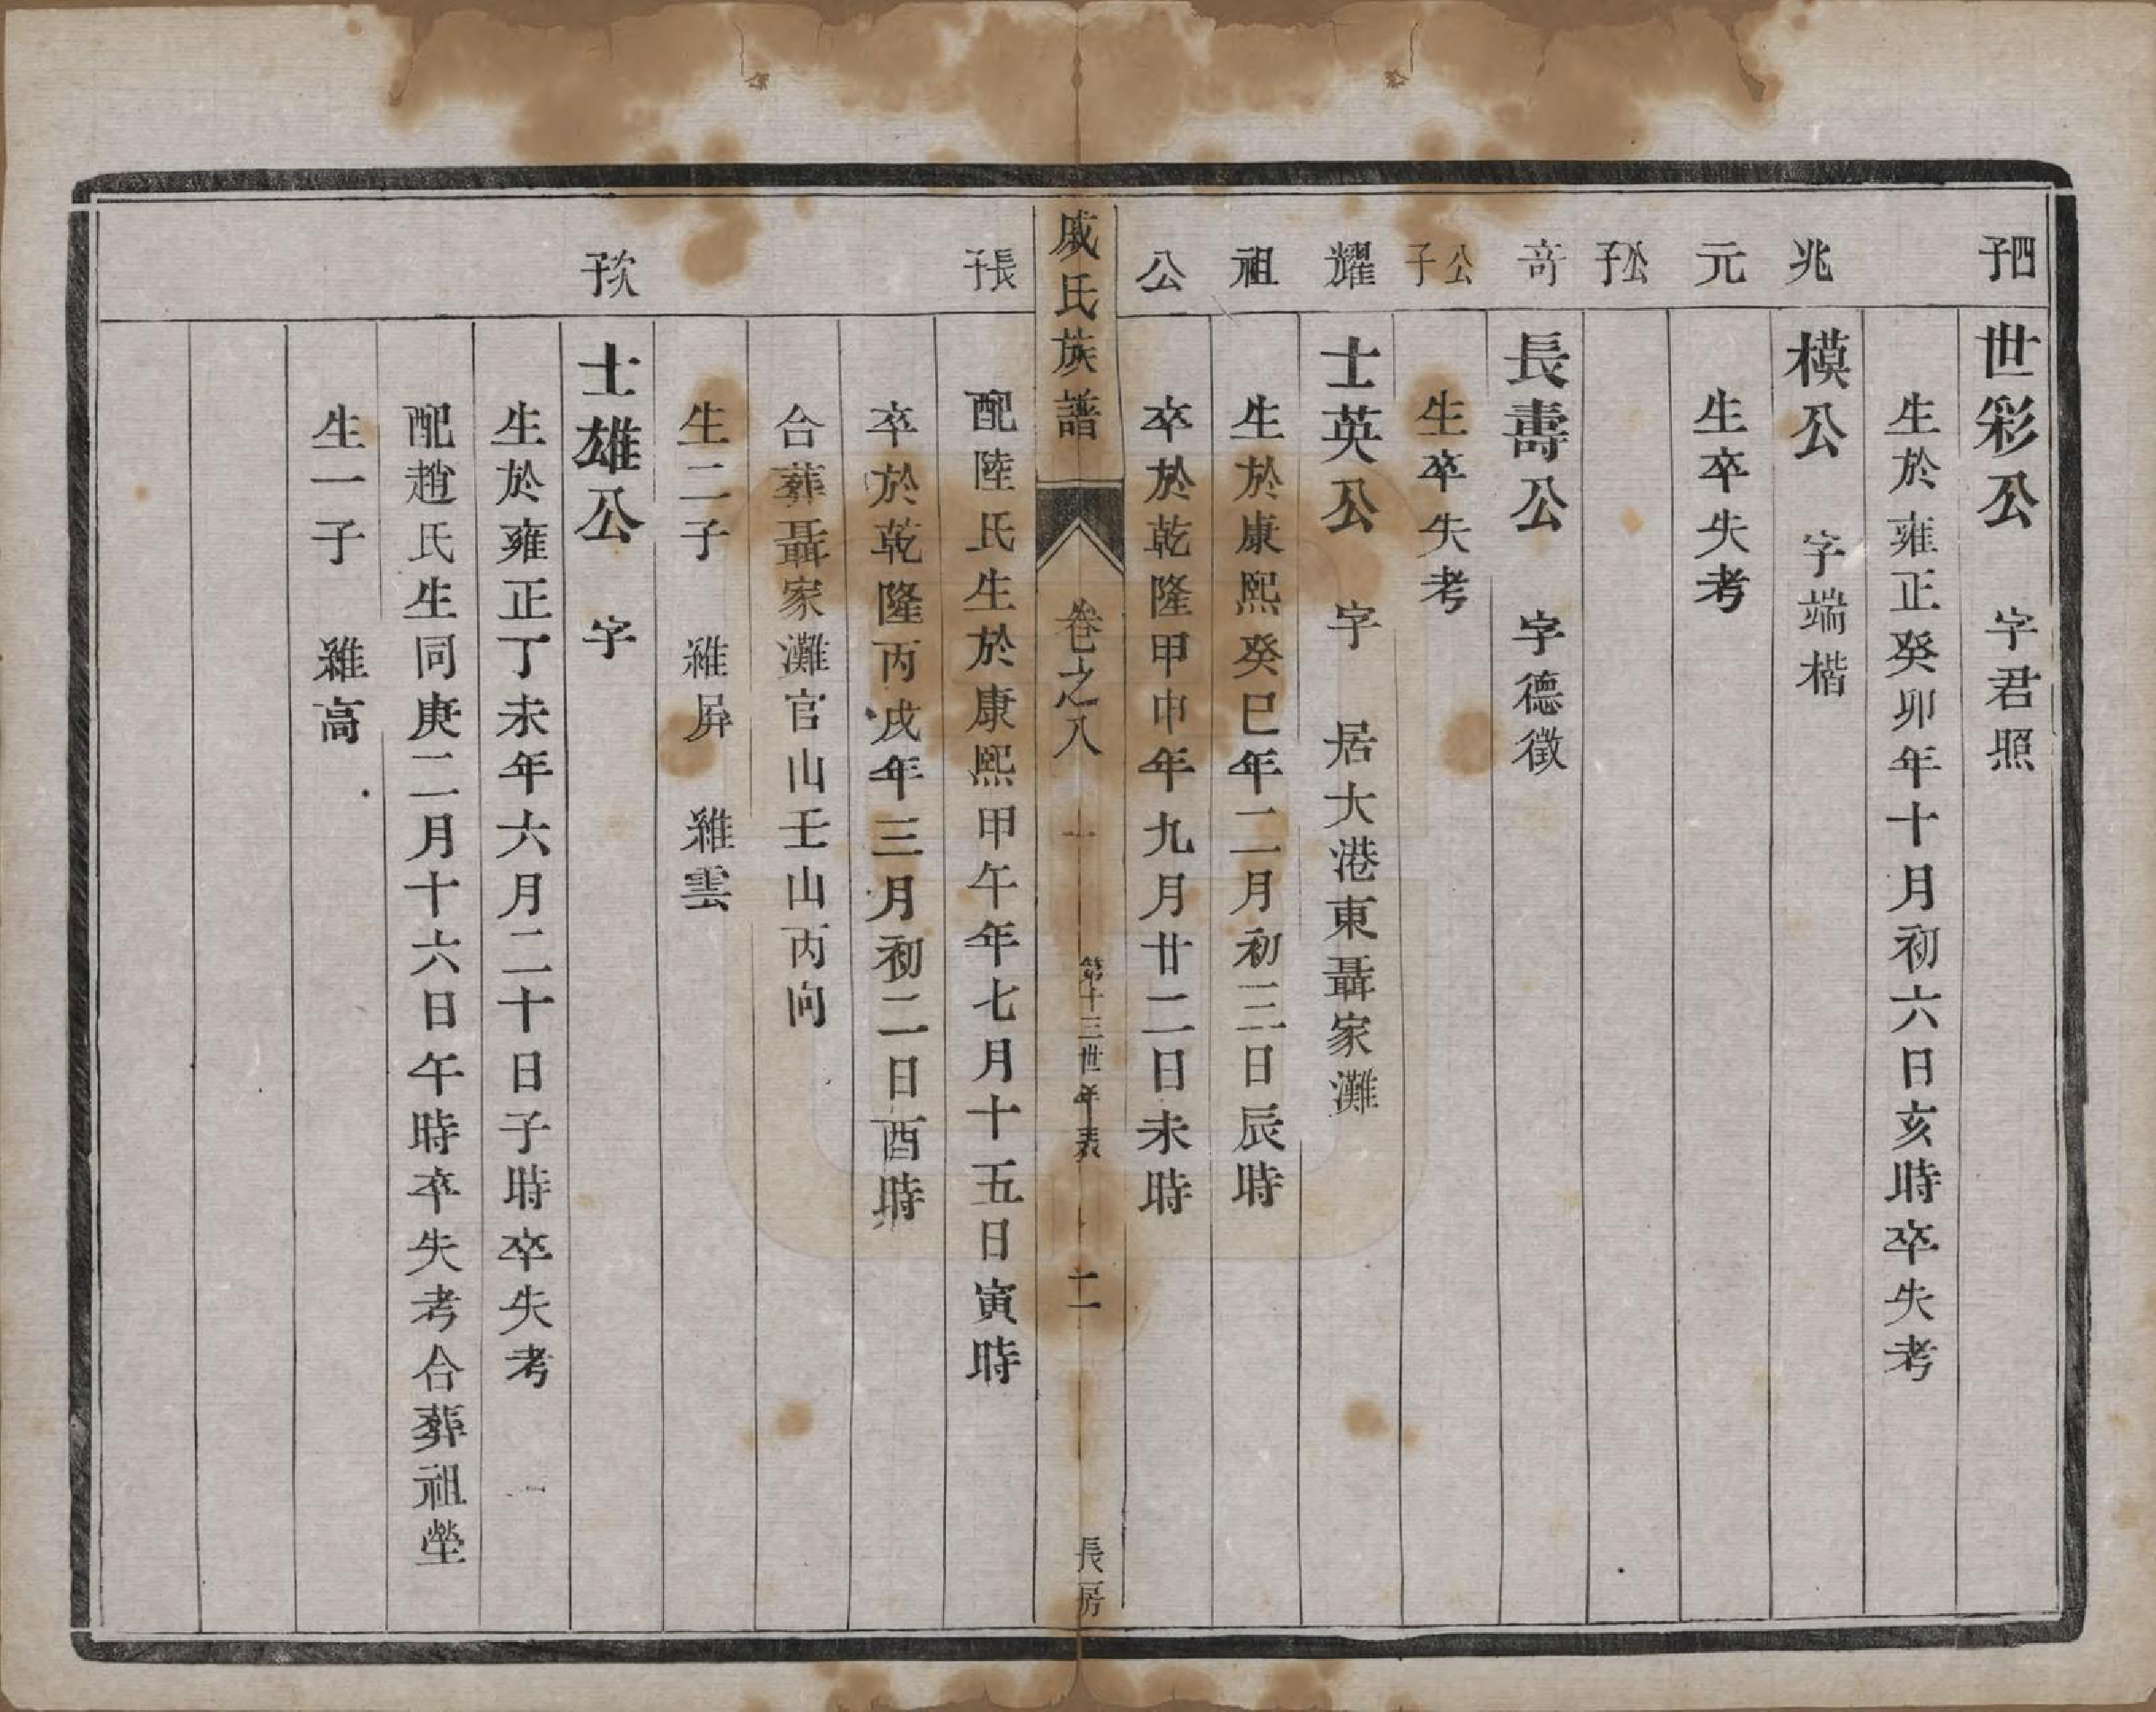 四子
世彩公　字君照
生於雍正癸卯年十月初六日亥時卒失考
兆
模公　字端楷
元
生卒失考
公子
奇
長壽公　字德徵
公子
生卒失考
耀
士英公　字　居大港東聶家灘
祖
生於康熙癸巳年二月初三日辰時
公
卒於乾隆甲申年九月廿二日未時
戚氏族譜
卷之八
第十三世年表
二
長房
長子
配陸氏生於康熙甲午年七月十五日寅時
卒於乾隆丙戌年三月初二日酉時
合葬聶家灘官山壬山丙向
生二子　維屏　維雲
次子
士雄公　字
生於雍正丁未年六月二十日子時卒失考
配趙氏生同庚二月十六日午時卒失考合葬祖塋
生一子　維高